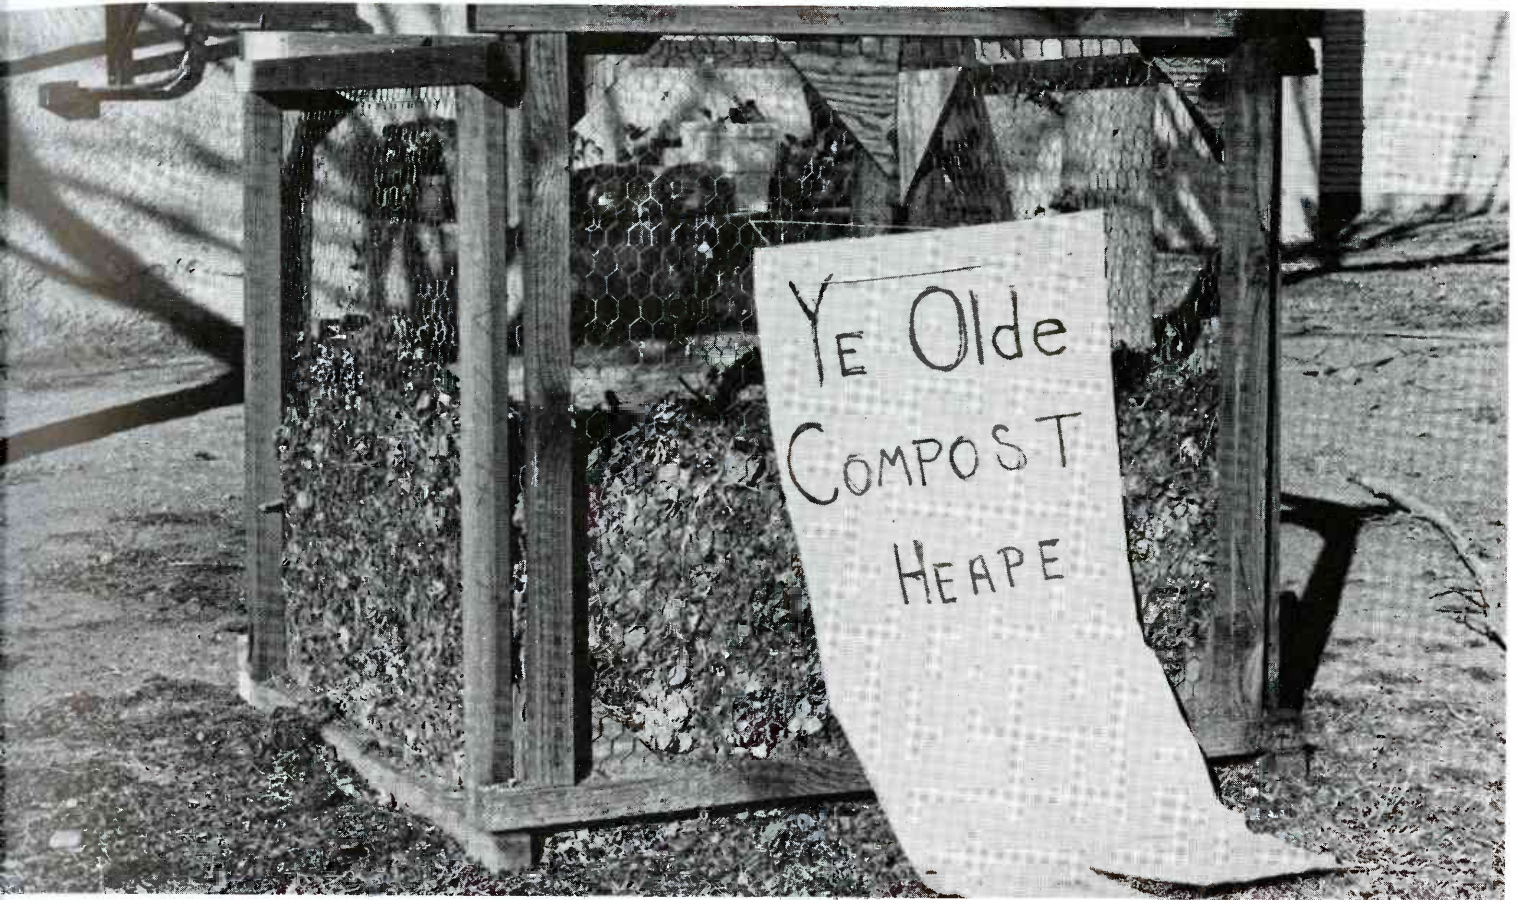 Ye Olde
COMPOST
HEAPE